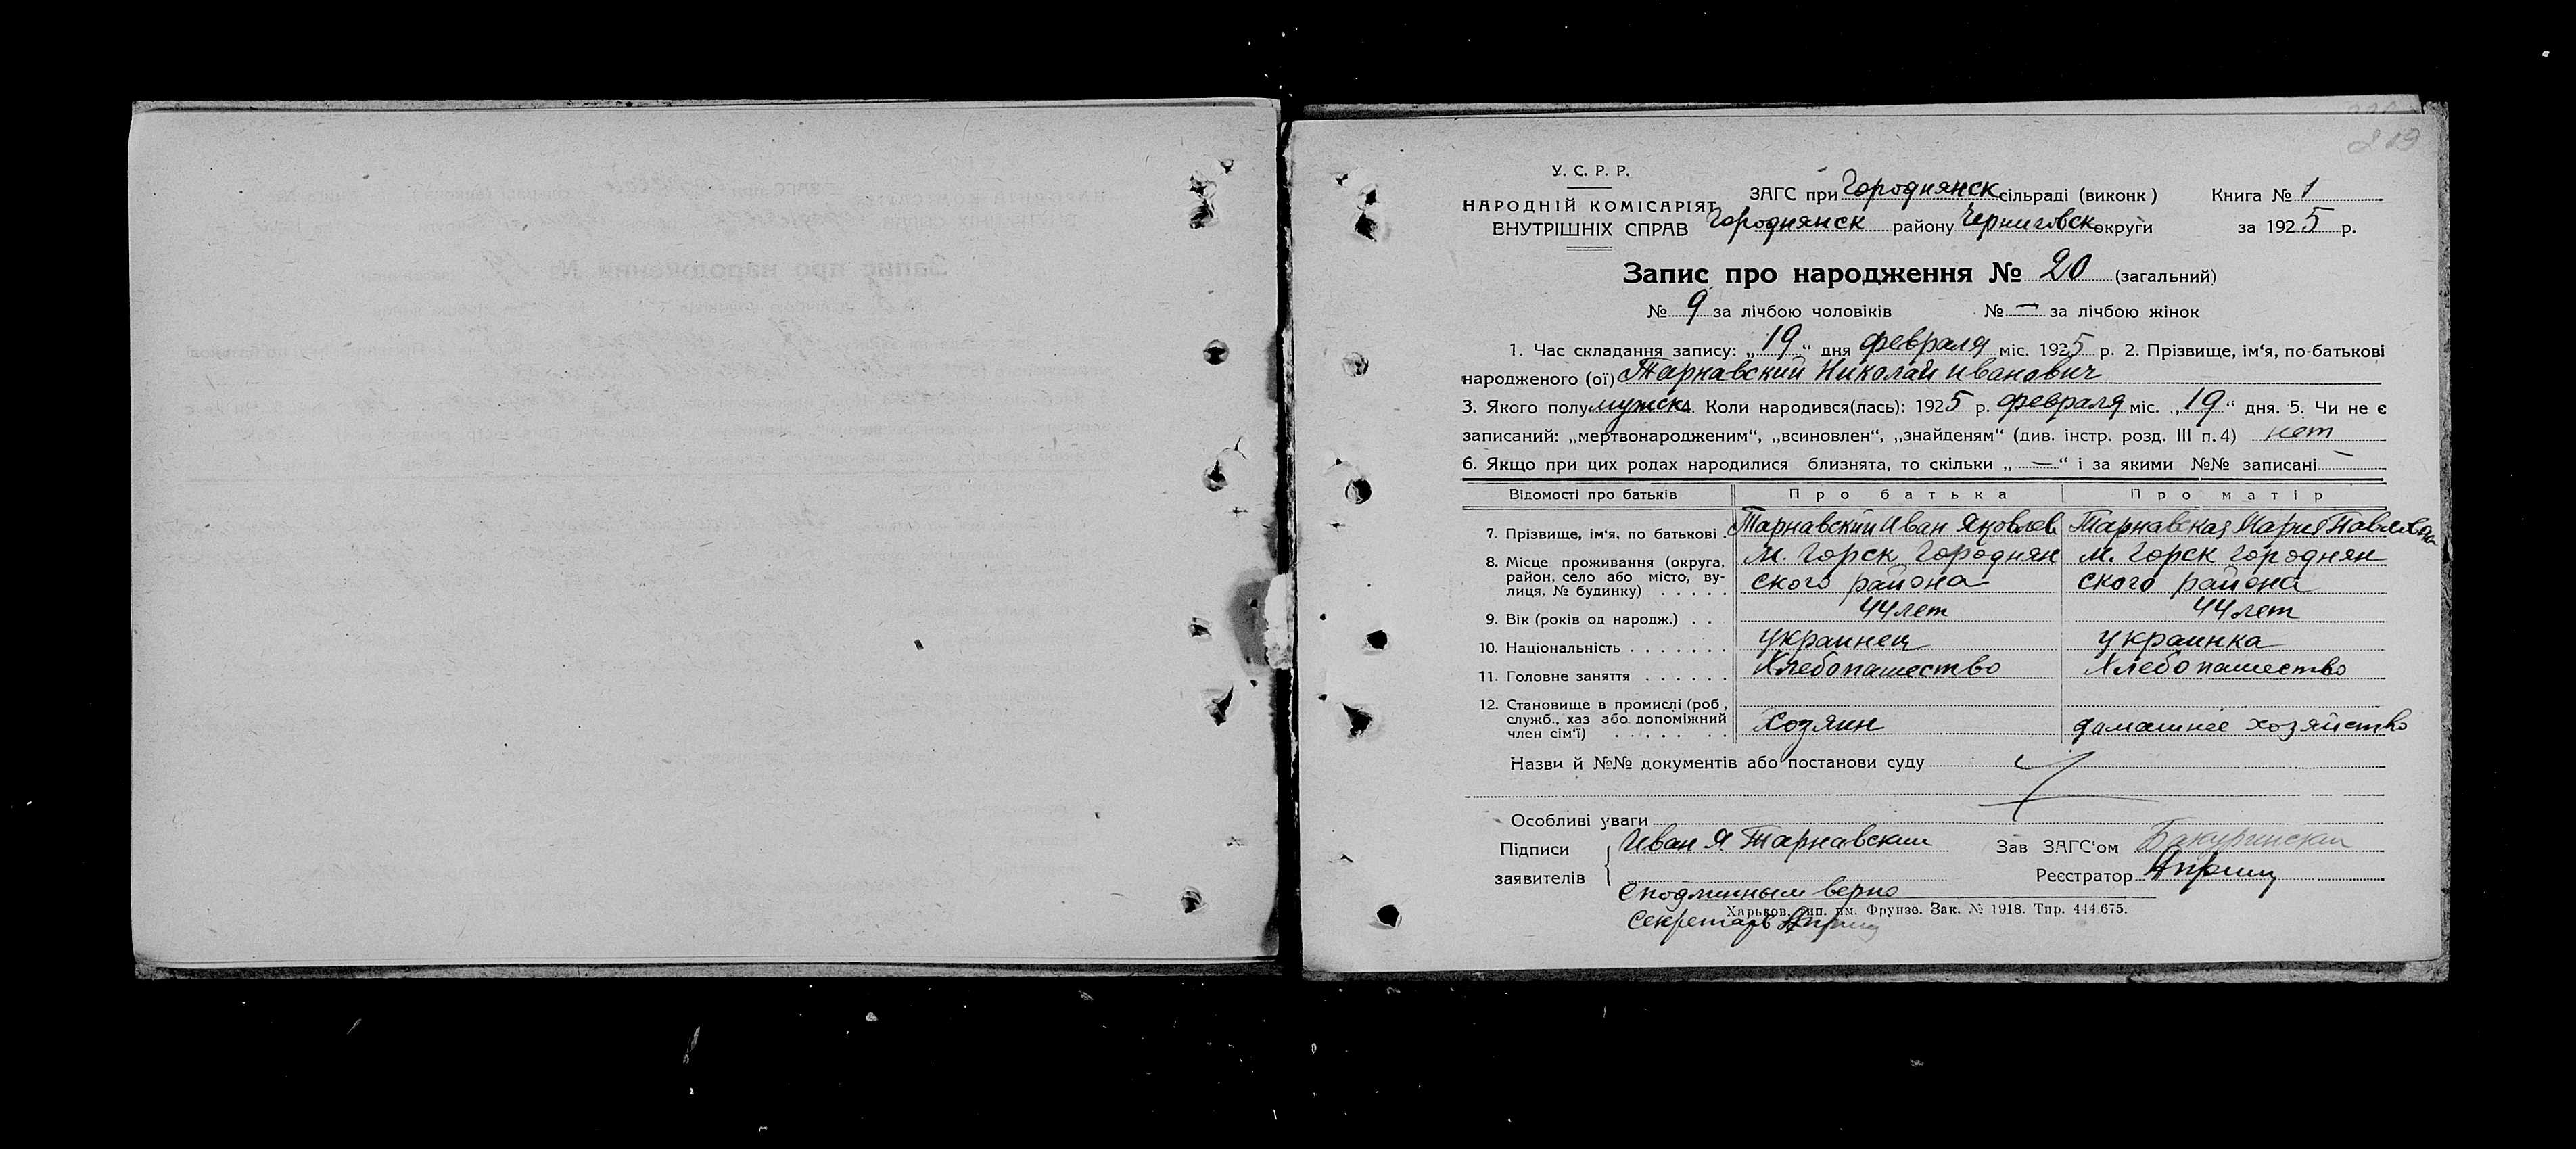 219
У. С. Р. Р.
НАРОДНІЙ КОМІСАРІЯТ
ВНУТРІШНІХ СПРАВ
ЗАГС при Городнянск сільраді (виконк) Книга № 1
Городнянск району Черниговск округи за 1925 р.
Запис про народження № 20 (загальний)
№ 9 за лічбою чоловіків № — за лічбою жінок
1. Час складання запису: „19“ дня февраля міс. 1925 р. 2. Прізвище, ім‘я, по-батькові
народженого (ої) Тарнавский Николай Иванович
3. Якого полу мужск 4. Коли народився(лась): 1925 р. февраля міс. „19“ дня. 5. Чи не є
записаний: „мертвонародженим“, „всиновлен“, „знайденям“ (див. інстр. розд. III п. 4) нет
6. Якщо при цих родах народилися близнята, то скільки „—“ і за якими №№ записані —
Відомості про батьків Про батька Про матір
7. Прізвище, ім‘я, по батькові . Тарнавский Иван Яковлев Тарнавская Мария Павловна
8. Місце проживання (округа, м. Горск Городнян м. Горск Городнян
район, село або місто, ву-
лиця, № будинку) . . . . . ского района ского района
9. Вік (років од народж.) . . 44 лет 44 лет
10. Національність . . . . . . . украинец украинка
11. Головне заняття . . . . . . Хлебопашество Хлебопашество
12. Становище в промислі (роб.,
служб., хаз або допоміжний
член сім‘ї) . . . . . . . Хозяин домашнее хозяйство
Назви й №№ документів або постанови суду
Особливі уваги
Підписи
заявителів
Иван Я Тарнавский
Зав ЗАГС‘ом
Реєстратор
С подлинным верно
Секретарь
Харьков, тип. им. Фрунзе. Зак. № 1918. Тир. 444.675.